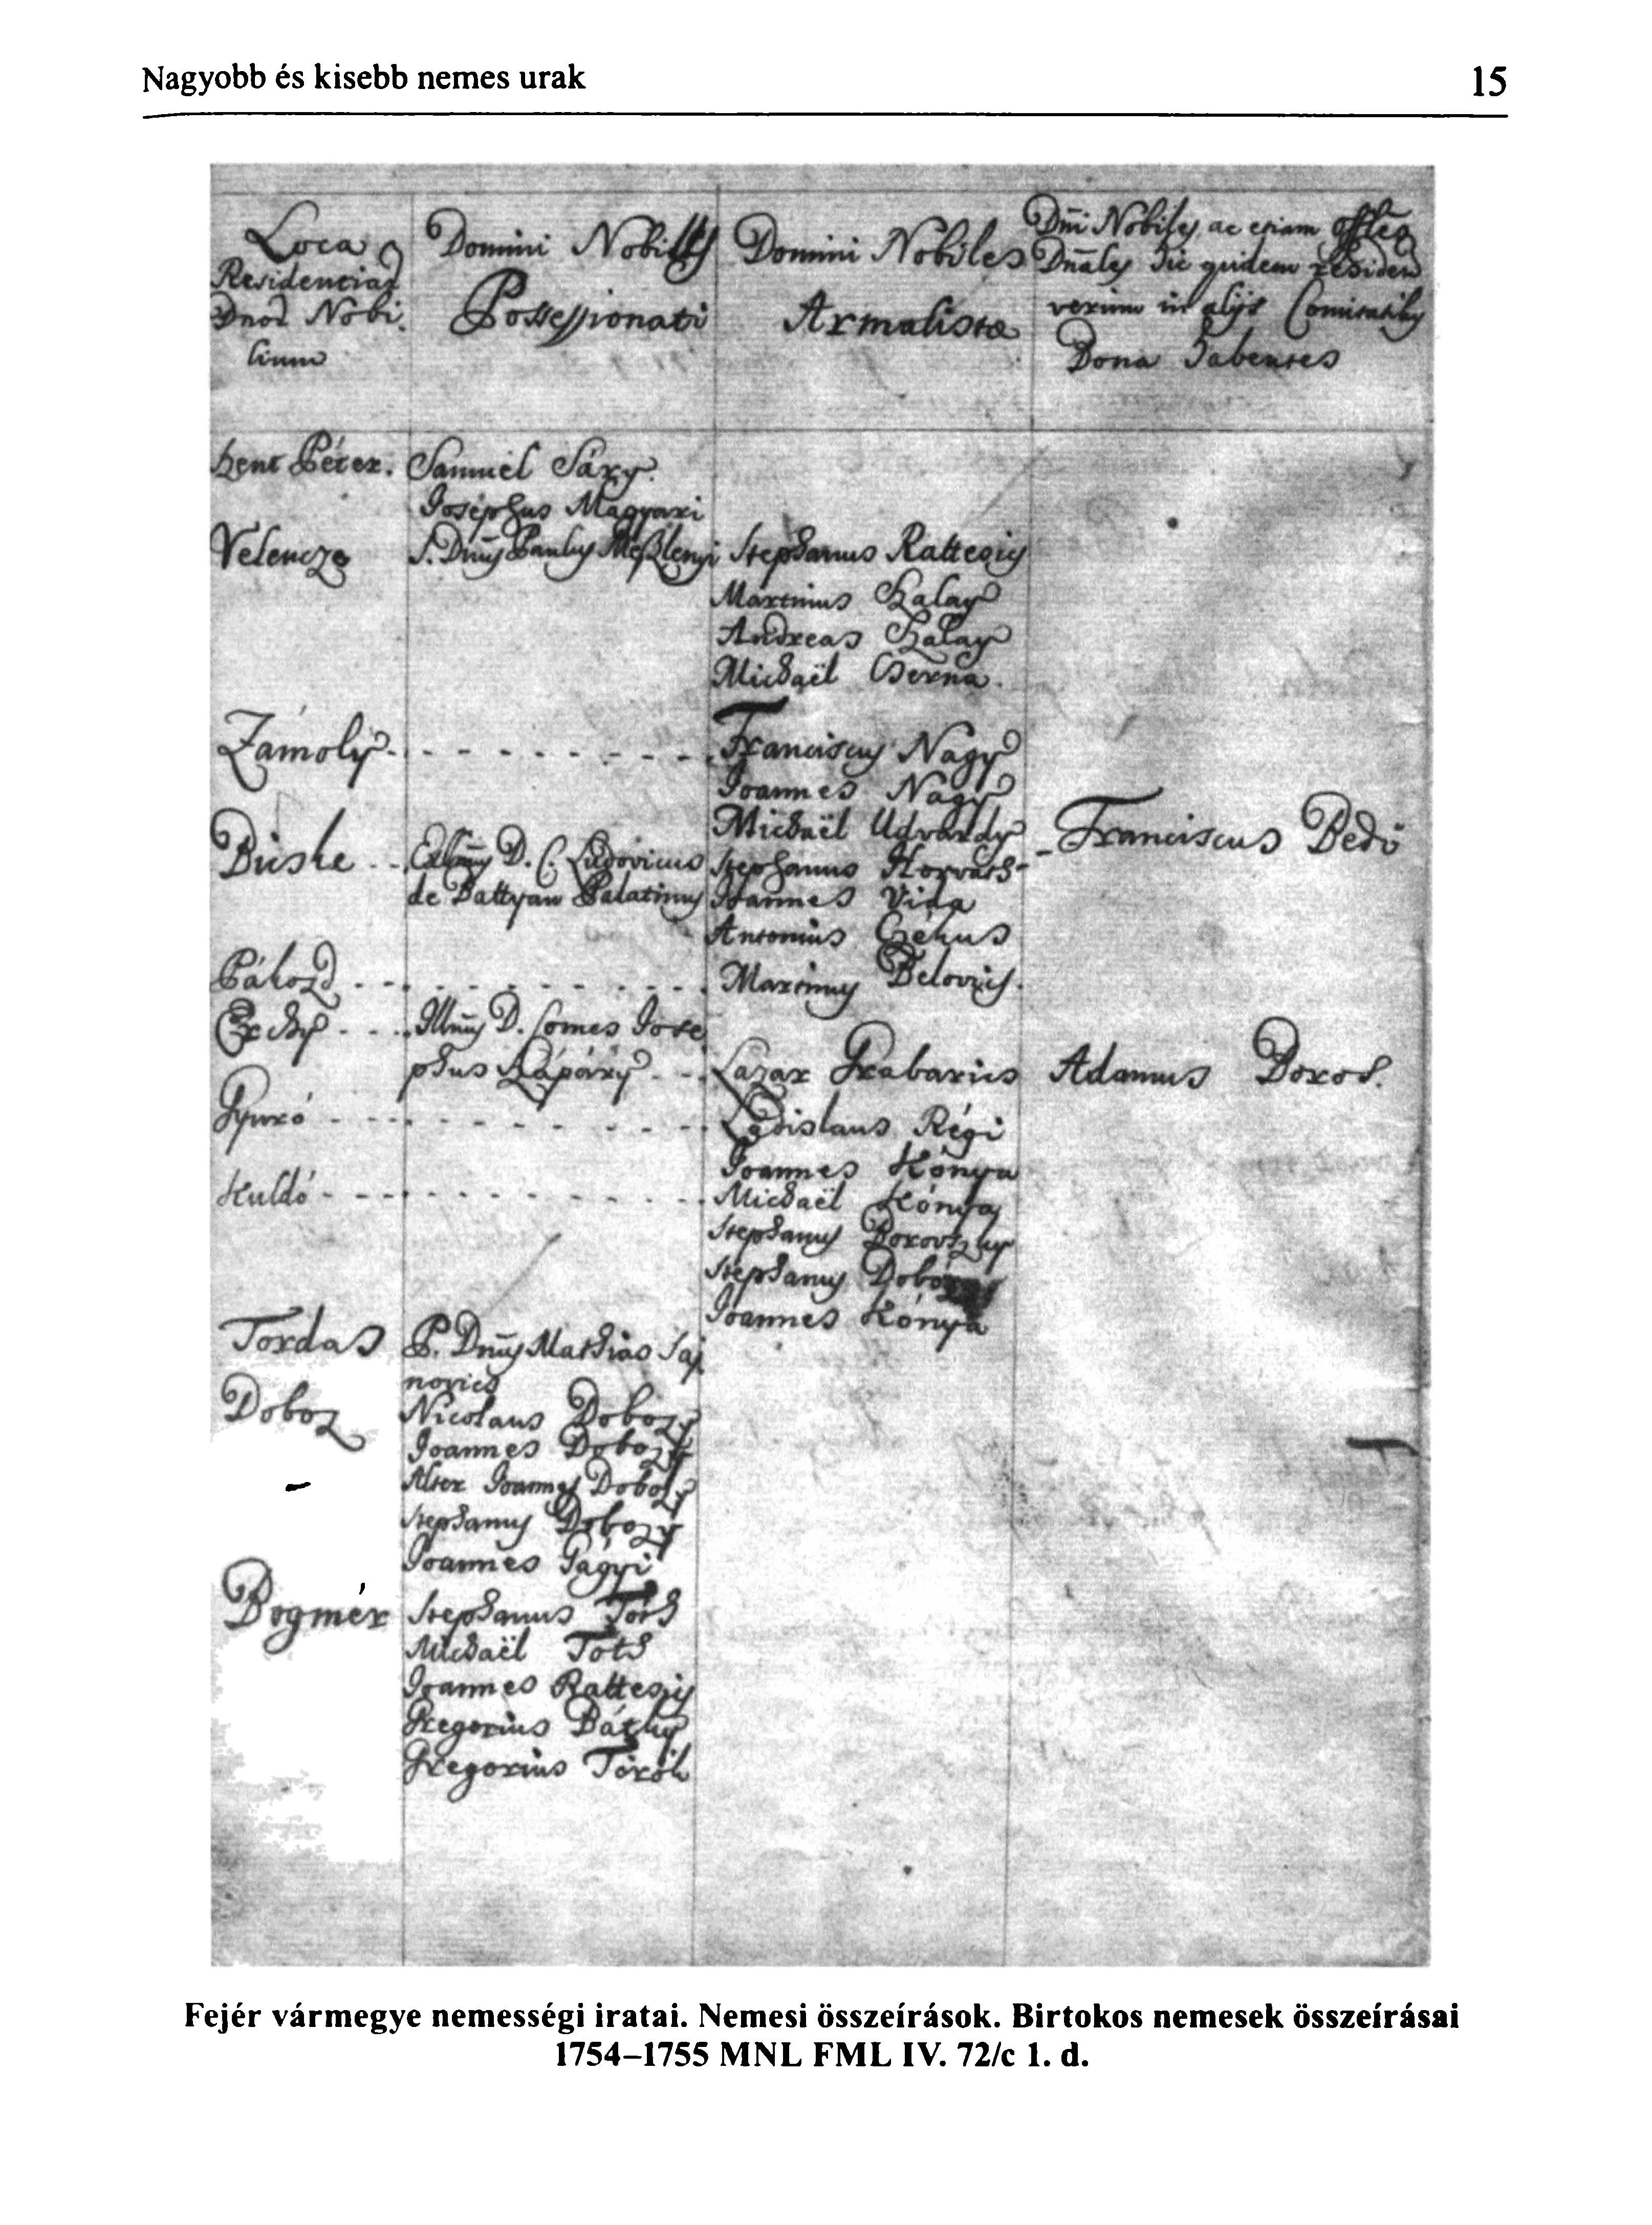 Nagyobb és kisebb nemes urak 15
Loca
Residentiae
Dnor Nobi
lium
Domini Nobiles
Possessionati
Domini Nobiles
Armalistae
Dni Nobiles, ac etiam
Dnales hic quidem
verum in alijs Comitatibus
Bona habentes
Szent Péter. Samuel Sáry.
Josephus Magyari
Velencze S. Dnus Paulus Meszlenyi Stephanus Rattesics
Martinus Szalay
Andreas Szalay
Michaël Cserna.
Zámoly - - - - - - - - - Franciscus Nagy
Joannes Nagy
Michaël Udvardy
Bicske - - D. C. Ludovicus Stephanus Horváth - Franciscus Bedő
de Battyan Palatinus Joannes Vida
Antonius
Pákozd - - - - - - - - - Martinus Belovics.
Ercshy - - - Illmus D. Comes Jose
phus Szápáry - - Lazar Grabarics Adamus Boros.
Gyuró - - - - - - - - - Ladislaus Régi
Joannes Kónya
Kuldó - - - - - - - - - Michaël Kónya
Stephanus
Stephanus
Joannes Kónya
Tordas P. Dnus Mathias Saj
novics
Doboz Nicolaus Dobozy
Joannes Dobozy
Alter Joannes Dobozy
Stephanus Dobozy
Joannes Gágyi
Bogmér Stephanus Tóth
Michaël Tóth
Joannes Rattesics
Gregorius Báthy
Gregorius Török
Fejér vármegye nemességi iratai. Nemesi összeírások. Birtokos nemesek összeírásai
1754–1755 MNL FML IV. 72/c 1. d.